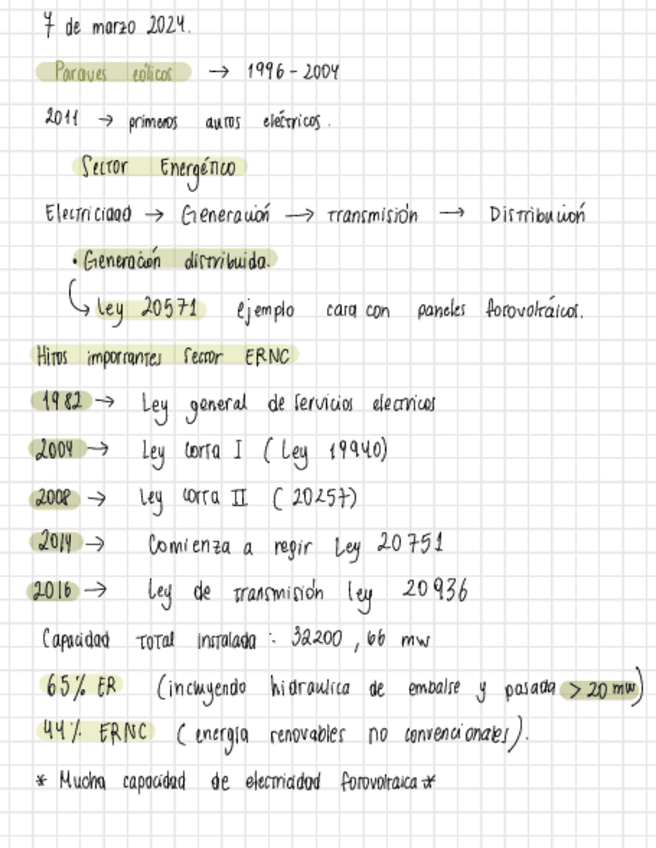 7 de marzo 2024.
Parques eólicos → 1996 - 2004
2011 → primeros autos eléctricos.
Sector Energético
Electricidad → Generación → transmisión → Distribución
• Generación distribuida.
↳ Ley 20571 ejemplo casa con paneles fotovoltáicos.
Hitos importantes sector ERNC
1982 → Ley general de servicios electricos
2004 → Ley corta I ( Ley 19940)
2008 → Ley corta II ( 20257)
2014 → Comienza a regir Ley 20751
2016 → Ley de transmisión ley 20936
Capacidad total instalada : 32200,66 mw
65% ER (incluyendo hidraulica de embalse y pasada > 20 mw)
44% ERNC ( energía renovables no convencionales).
* Mucha capacidad de electricidad fotovoltaica *